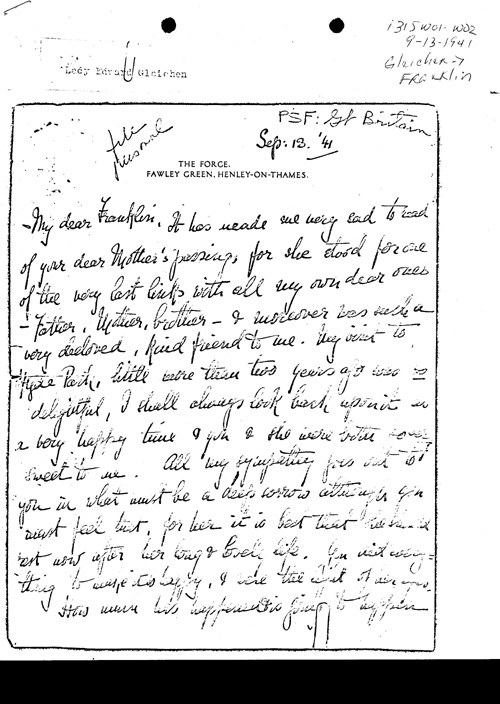 i315w01-w02
9-13-1941
Gleichen →
Franklin
Lady Edward Gleichen
PSF: Gt Britain
file
personal
Sep. 13. '41
THE FORGE.
FAWLEY GREEN, HENLEY-ON-THAMES.
My dear Franklin. It has made me very sad to read
of your dear Mother's passing, for she stood for one
of the very last links with all my own dear ones
– Father, Mother, brother – & moreover was such a
very beloved, kind friend to me. My visit to
Hyde Park, little more than two years ago was so
delightful, I shall always look back upon it as
a very happy time & you & she were both so
sweet to me. All my sympathy goes out to
you in what must be a deep sorrow although you
must feel that, for her it is best that
rest now after her long & lovely life. You did every-
thing to make it happy, & were the light of her eyes.
How much has happened & is going to happen